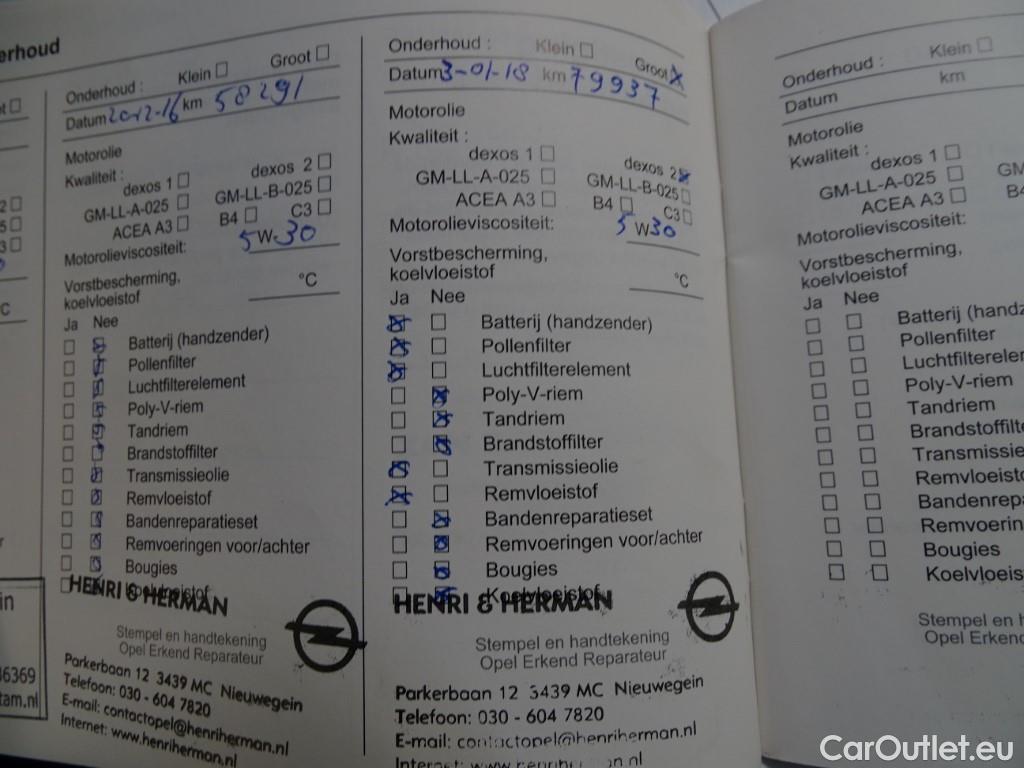 erhoud
Onderhoud : Klein ☐ Groot ☐
Datum 20-12-16 km 58291
Motorolie
Kwaliteit :
dexos 1 ☐ dexos 2 ☐
GM-LL-A-025 ☐ GM-LL-B-025 ☐
ACEA A3 ☐ B4 ☐ C3 ☐
Motorolieviscositeit: 5 W 30
Vorstbescherming,
koelvloeistof °C
Ja Nee
☐ ☒ Batterij (handzender)
☐ ☒ Pollenfilter
☐ ☒ Luchtfilterelement
☐ ☒ Poly-V-riem
☐ ☒ Tandriem
☐ ☒ Brandstoffilter
☐ ☒ Transmissieolie
☐ ☒ Remvloeistof
☐ ☒ Bandenreparatieset
☐ ☒ Remvoeringen voor/achter
☐ ☒ Bougies
☐ ☒ Koelvloeistof
HENRI & HERMAN
Stempel en handtekening
Opel Erkend Reparateur
Parkerbaan 12 3439 MC Nieuwegein
Telefoon: 030 - 604 7820
E-mail: contactopel@henriherman.nl
Internet: www.henriherman.nl
Onderhoud : Klein ☐ Groot ☒
Datum 3-01-18 km 79937
Motorolie
Kwaliteit :
dexos 1 ☐ dexos 2 ☒
GM-LL-A-025 ☐ GM-LL-B-025 ☐
ACEA A3 ☐ B4 ☐ C3 ☐
Motorolieviscositeit: 5 W 30
Vorstbescherming,
koelvloeistof °C
Ja Nee
☒ ☐ Batterij (handzender)
☒ ☐ Pollenfilter
☒ ☐ Luchtfilterelement
☐ ☒ Poly-V-riem
☐ ☒ Tandriem
☐ ☒ Brandstoffilter
☒ ☐ Transmissieolie
☒ ☐ Remvloeistof
☐ ☒ Bandenreparatieset
☐ ☒ Remvoeringen voor/achter
☐ ☒ Bougies
☐ ☒ Koelvloeistof
HENRI & HERMAN
Stempel en handtekening
Opel Erkend Reparateur
Parkerbaan 12 3439 MC Nieuwegein
Telefoon: 030 - 604 7820
E-mail: contactopel@henriherman.nl
Internet: www.henriherman.nl
Onderhoud : Klein ☐
Datum km
Motorolie
Kwaliteit :
dexos 1 ☐
GM-LL-A-025 ☐ GM
ACEA A3 ☐ B4
Motorolieviscositeit:
Vorstbescherming,
koelvloeistof
Ja Nee
☐ ☐ Batterij (handze
☐ ☐ Pollenfilter
☐ ☐ Luchtfilterelem
☐ ☐ Poly-V-riem
☐ ☐ Tandriem
☐ ☐ Brandstoffilte
☐ ☐ Transmissie
☐ ☐ Remvloeisto
☐ ☐ Bandenrepa
☐ ☐ Remvoerin
☐ ☐ Bougies
☐ ☐ Koelvloeis
Stempel en h
Opel Erkend
in
46369
tam.nl
CarOutlet.eu